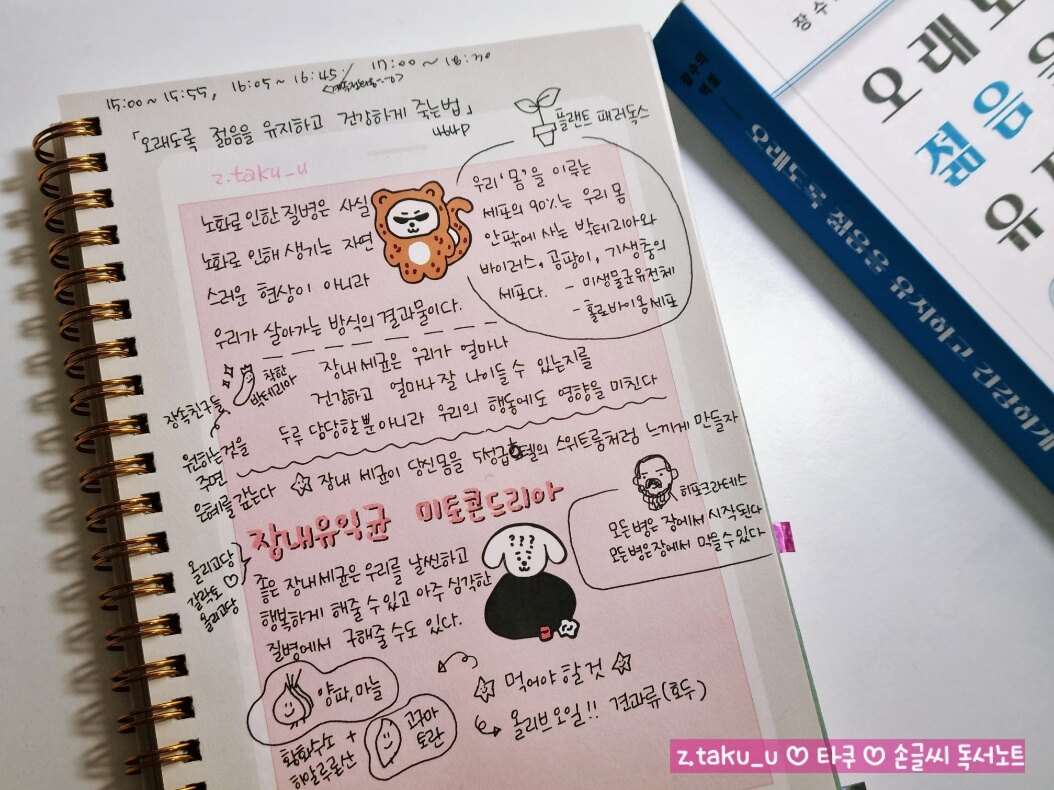 15:00 ~ 15:55, 16:05 ~ 16:45 / 17:00 ~ 18:20
「오래도록 젊음을 유지하고 건강하게 죽는법」
플랜트 패러독스
z.taku_u
노화로 인한 질병은 사실
노화로 인해 생기는 자연
스러운 현상이 아니라
우리가 살아가는 방식의 결과물이다.
우리 '몸'을 이루는
세포의 90%는 우리 몸
안팎에 사는 박테리아와
바이러스, 곰팡이, 기생충의
세포다. - 미생물군유전체
- 홀로바이옴 세포
착한
박테리아
장내 세균은 우리가 얼마나
건강하고 얼마나 잘 나이들 수 있는지를
두루 담당할 뿐아니라 우리의 행동에도 영향을 미친다
장속친구들
원하는 것을
주면
은혜를 갚는다
☆ 장내 세균이 당신몸을 5성급호텔의 스위트룸처럼 느끼게 만들자
장내유익균 미토콘드리아
히포크라테스
모든 병은 장에서 시작된다
모든 병은 장에서 막을 수 있다
올리고당
갈락토 ♡
올리고당
좋은 장내 세균은 우리를 날씬하고
행복하게 해줄 수 있고 아주 심각한
질병에서 구해줄 수도 있다.
☆ 먹어야 할 것 ☆
올리브 오일!! 견과류(호두)
양파, 마늘
황화수소 +
히알루론산
고구마
토란
장수의
역설
오래도록 젊음을 유지하고 건강하게
장수
오래도
젊음을
유지
z.taku_u ♡ 타쿠 ♡ 손글씨 독서노트